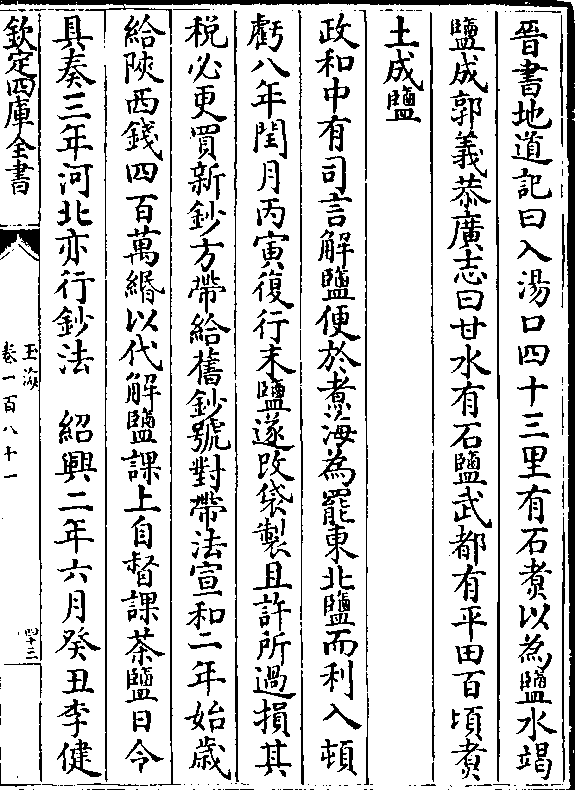 晉書地道記曰入湯口四十三里有石煑以為鹽水竭
鹽成郭義恭廣志曰甘水有石鹽武都有平田百頃煑
土成鹽
政和中有司言解鹽便於煑海為罷東北鹽而利入頓
虧八年閏月丙寅復行末鹽遂改袋製且許所過損其
税必更買新鈔方帶給舊鈔號對帶法宣和二年始歳
給陜西錢四百萬緡以代解鹽課上自督課茶鹽日令
具奏三年河北亦行鈔法　紹興二年六月癸丑李健
欽定四庫全書
玉海
卷一百八十一
四十三